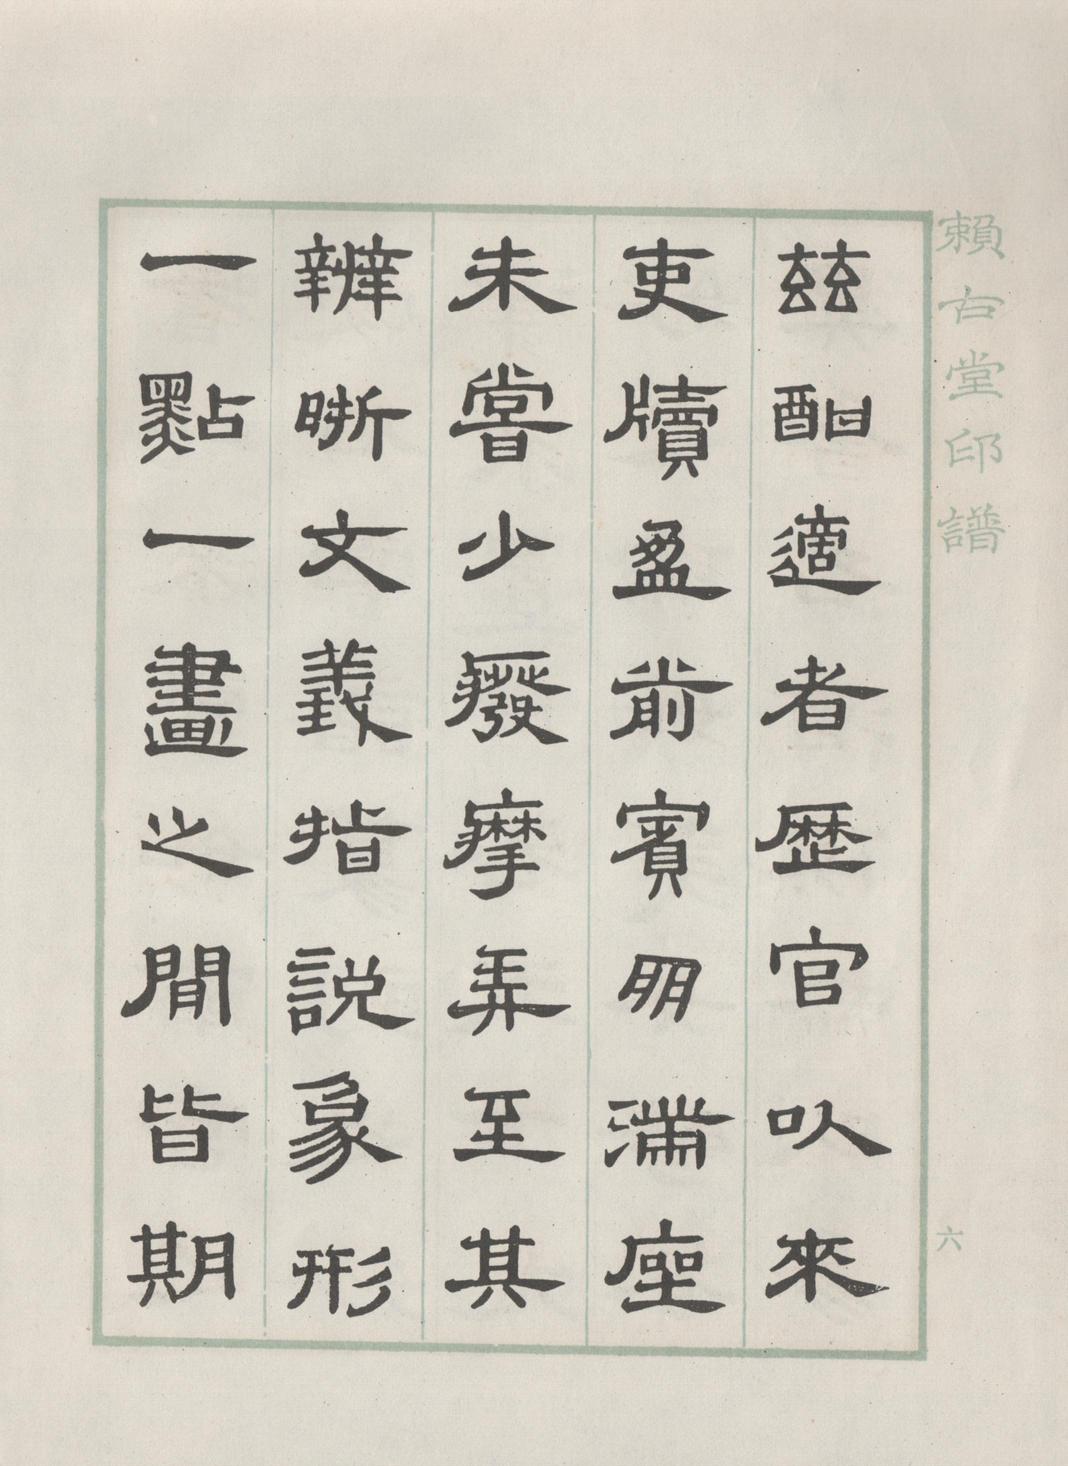 賴古堂印譜
六
茲酣適者歷官以來
吏牘盈前賓朋滿座
未嘗少癈摩弄至其
辨晰文義指說象形
一點一畫之間皆期